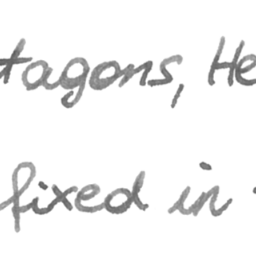 tagons, He
fixed in